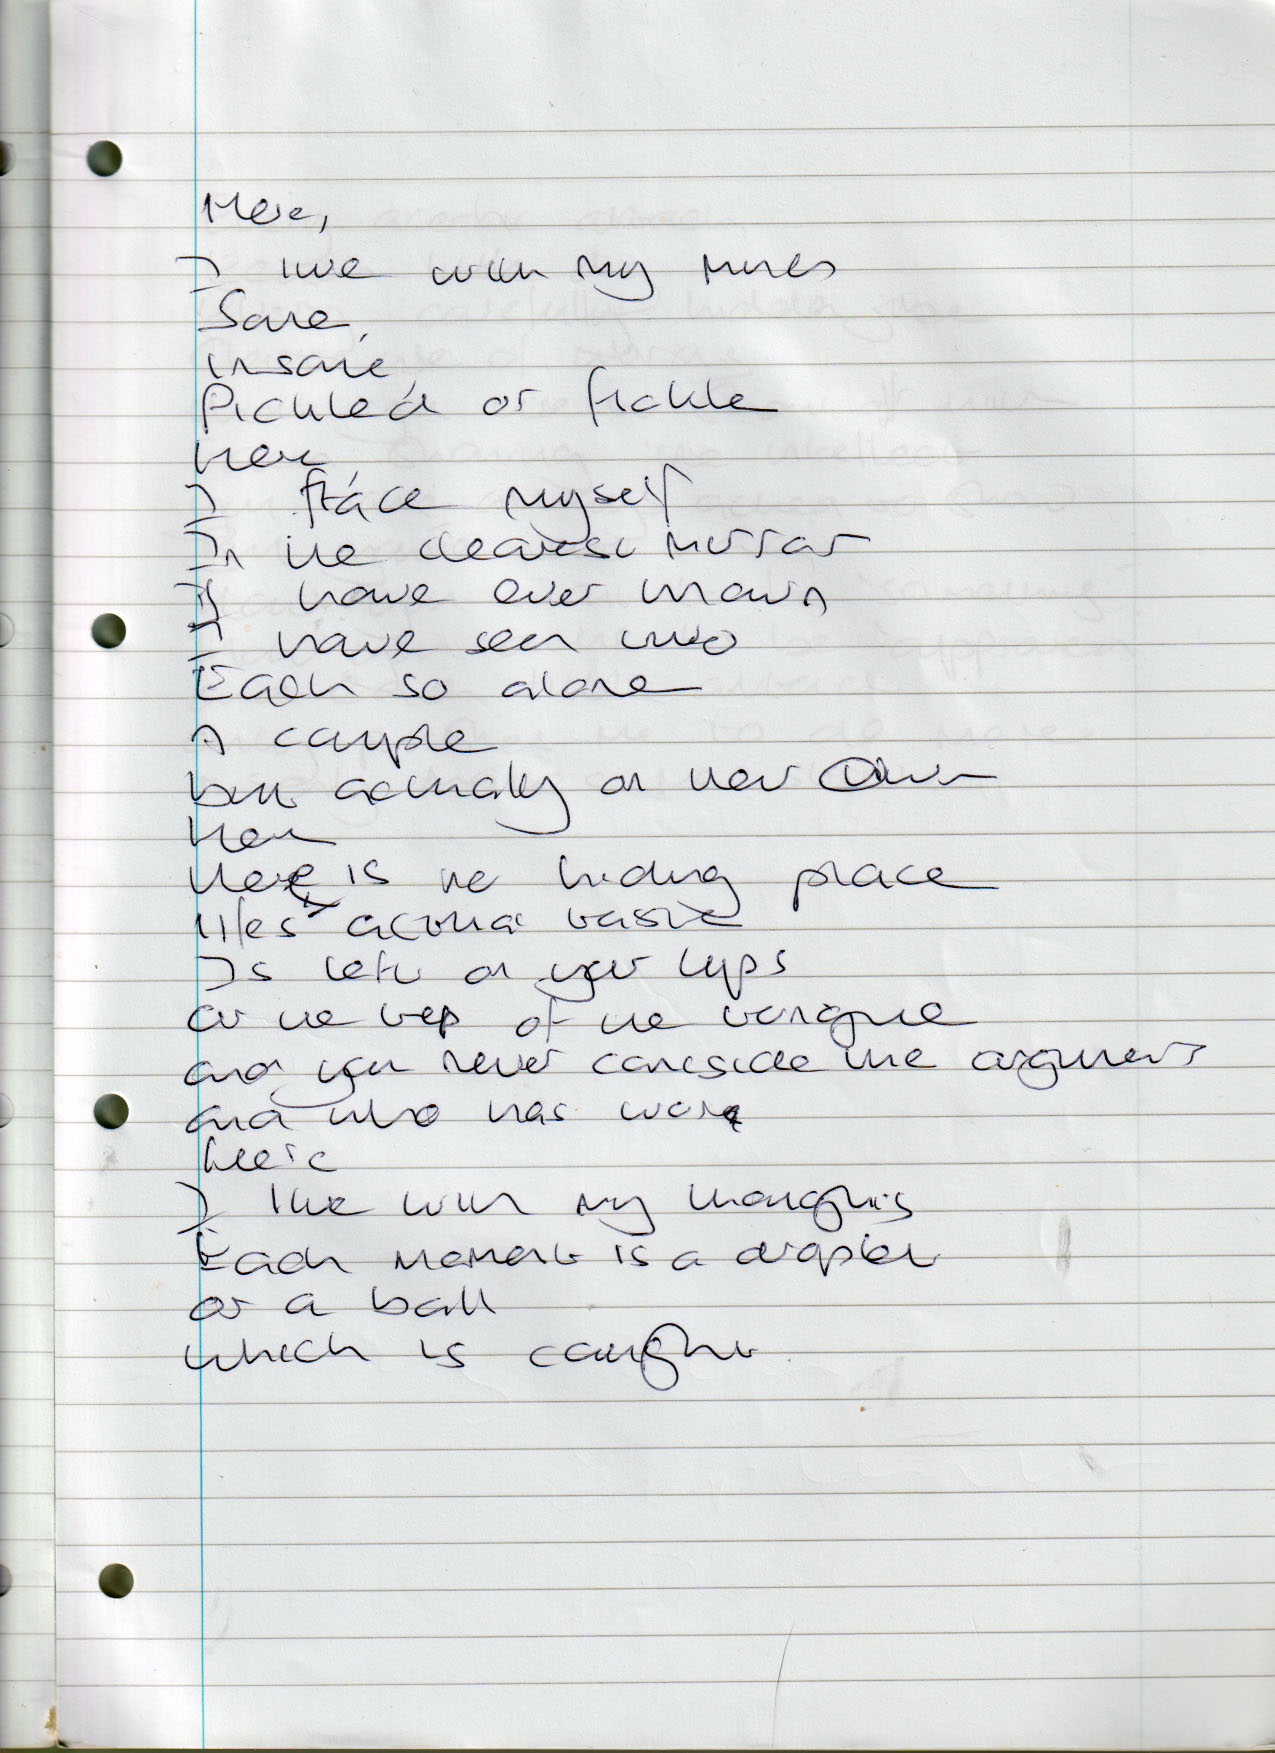 Here,
I live with my
Sane,
insane,
Pickled or fickle
here
I face myself
In the clearest mirror
I have ever known
I have seen two
Each so alone
A couple
but actually on their own
here
there is no hiding place
lifes actual taste
Is left on your lips
or the tip of the tongue
and you never the argument
and who has won
here
I live with my thoughts
Each moment is a
or a ball
which is caught.